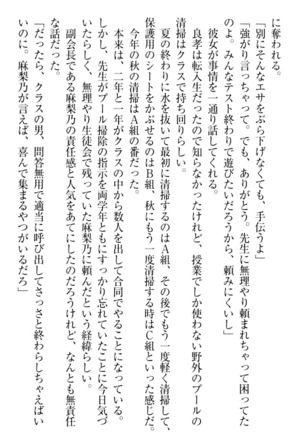 に奪われる。
「別にそんなエサをぶら下げなくても、手伝うよ」
「強がり言っちゃって。でも、ありがとう。先生に無理やり頼まれちゃって困ってた
のよ。みんなテスト終わりで遊びたいだろうから、頼みにくいし」
彼女が事情を一通り話してくれる。
良孝は転入生だったので知らなかったけれど、授業でしか使わない野外のプールの
清掃はクラスで持ち回りらしい。
夏の終わりに水を抜いて最初に清掃するのはＡ組、その後でもう一度軽く清掃して、
保護用のシートをかぶせるのはＢ組、秋にもう一度清掃する時はＣ組といった感じだ。
今年の秋の清掃はＡ組の番だった。
本来は、二年と一年がクラスの中から数人を出して合同でやることになっている。
しかし、先生がプール掃除の指示を両学年ともにすっかり忘れていたことに今日気づ
いたらしく、無理やり生徒会で残っていた麻梨乃に頼んだという経緯らしい。
副会長である麻梨乃の責任感と人気をあてにしたのだろうけれど、なんとも無責任
な話だった。
「だったら、クラスの男、問答無用で適当に呼び出してさっさと終わらしちゃえばい
いのに。麻梨乃が言えば、喜んで集まるやつがいるだろ」